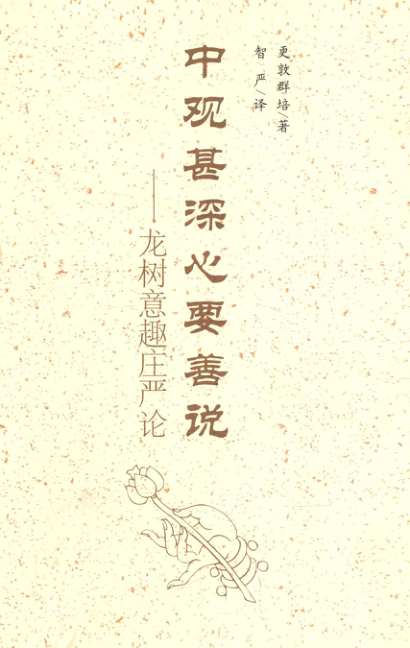 更敦群培/著
智严/译
中观甚深心要善说
——龙树意趣庄严论